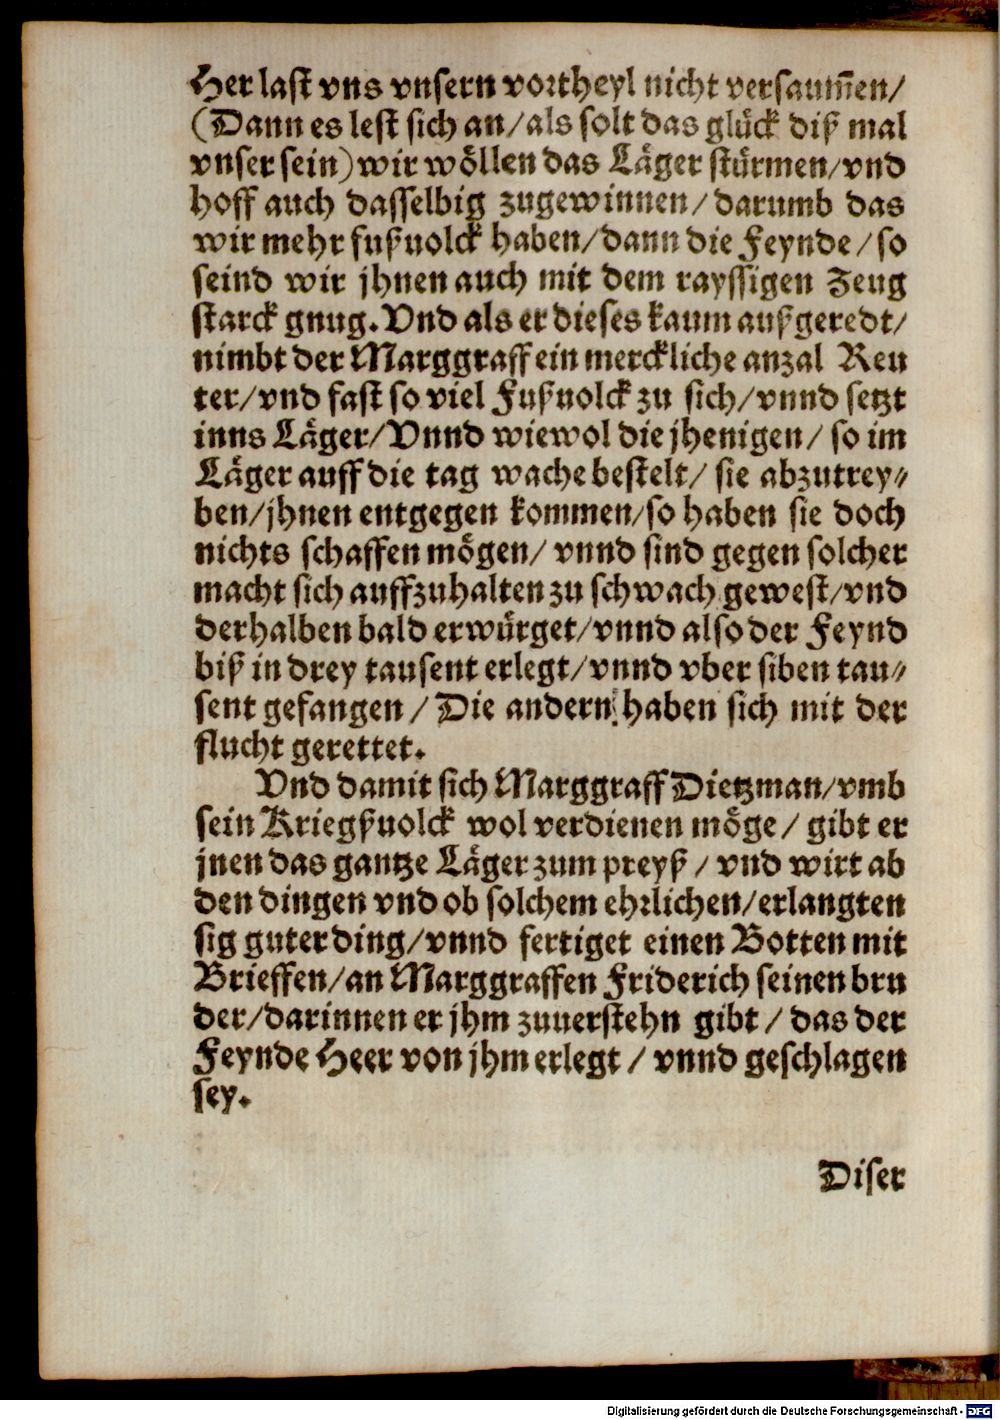 Her last vns vnsern vortheyl nicht versaum̃en/
(Dann es lest sich an/als solt das glück diß mal
vnser sein) wir wöllen das Läger stürmen/vnd
hoff auch dasselbig zugewinnen/darumb das
wir mehr fußuolck haben/dann die Feynde/so
seind wir jhnen auch mit dem rayssigen Zeug
starck gnug. Vnd als er dieses kaum außgeredt/
nimbt der Marggraff ein merckliche anzal Reu
ter/vnd fast so viel Fußuolck zu sich/vnnd setzt
inns Läger/Vnnd wiewol die jhenigen/ so im
Läger auff die tag wache bestelt/ sie abzutrey⸗
ben/jhnen entgegen kommen/so haben sie doch
nichts schaffen mögen/ vnnd sind gegen solcher
macht sich auffzuhalten zu schwach gewest/vnd
derhalben bald erwürget/vnnd also der Feynd
biß in drey tausent erlegt/vnnd vber siben tau⸗
sent gefangen/ Die andern haben sich mit der
flucht gerettet.
Vnd damit sich Marggraff Dietzman/vmb
sein Kriegßuolck wol verdienen möge/ gibt er
jnen das gantze Läger zum preyß/ vnd wirt ab
den dingen vnd ob solchem ehrlichen/erlangten
sig guter ding/vnnd fertiget einen Botten mit
Brieffen/an Marggraffen Friderich seinen bru
der/darinnen er jhm zuuerstehn gibt/ das der
Feynde Heer von jhm erlegt/ vnnd geschlagen
sey.
Diser
Digitalisierung gefördert durch die Deutsche Forschungsgemeinschaft - DFG